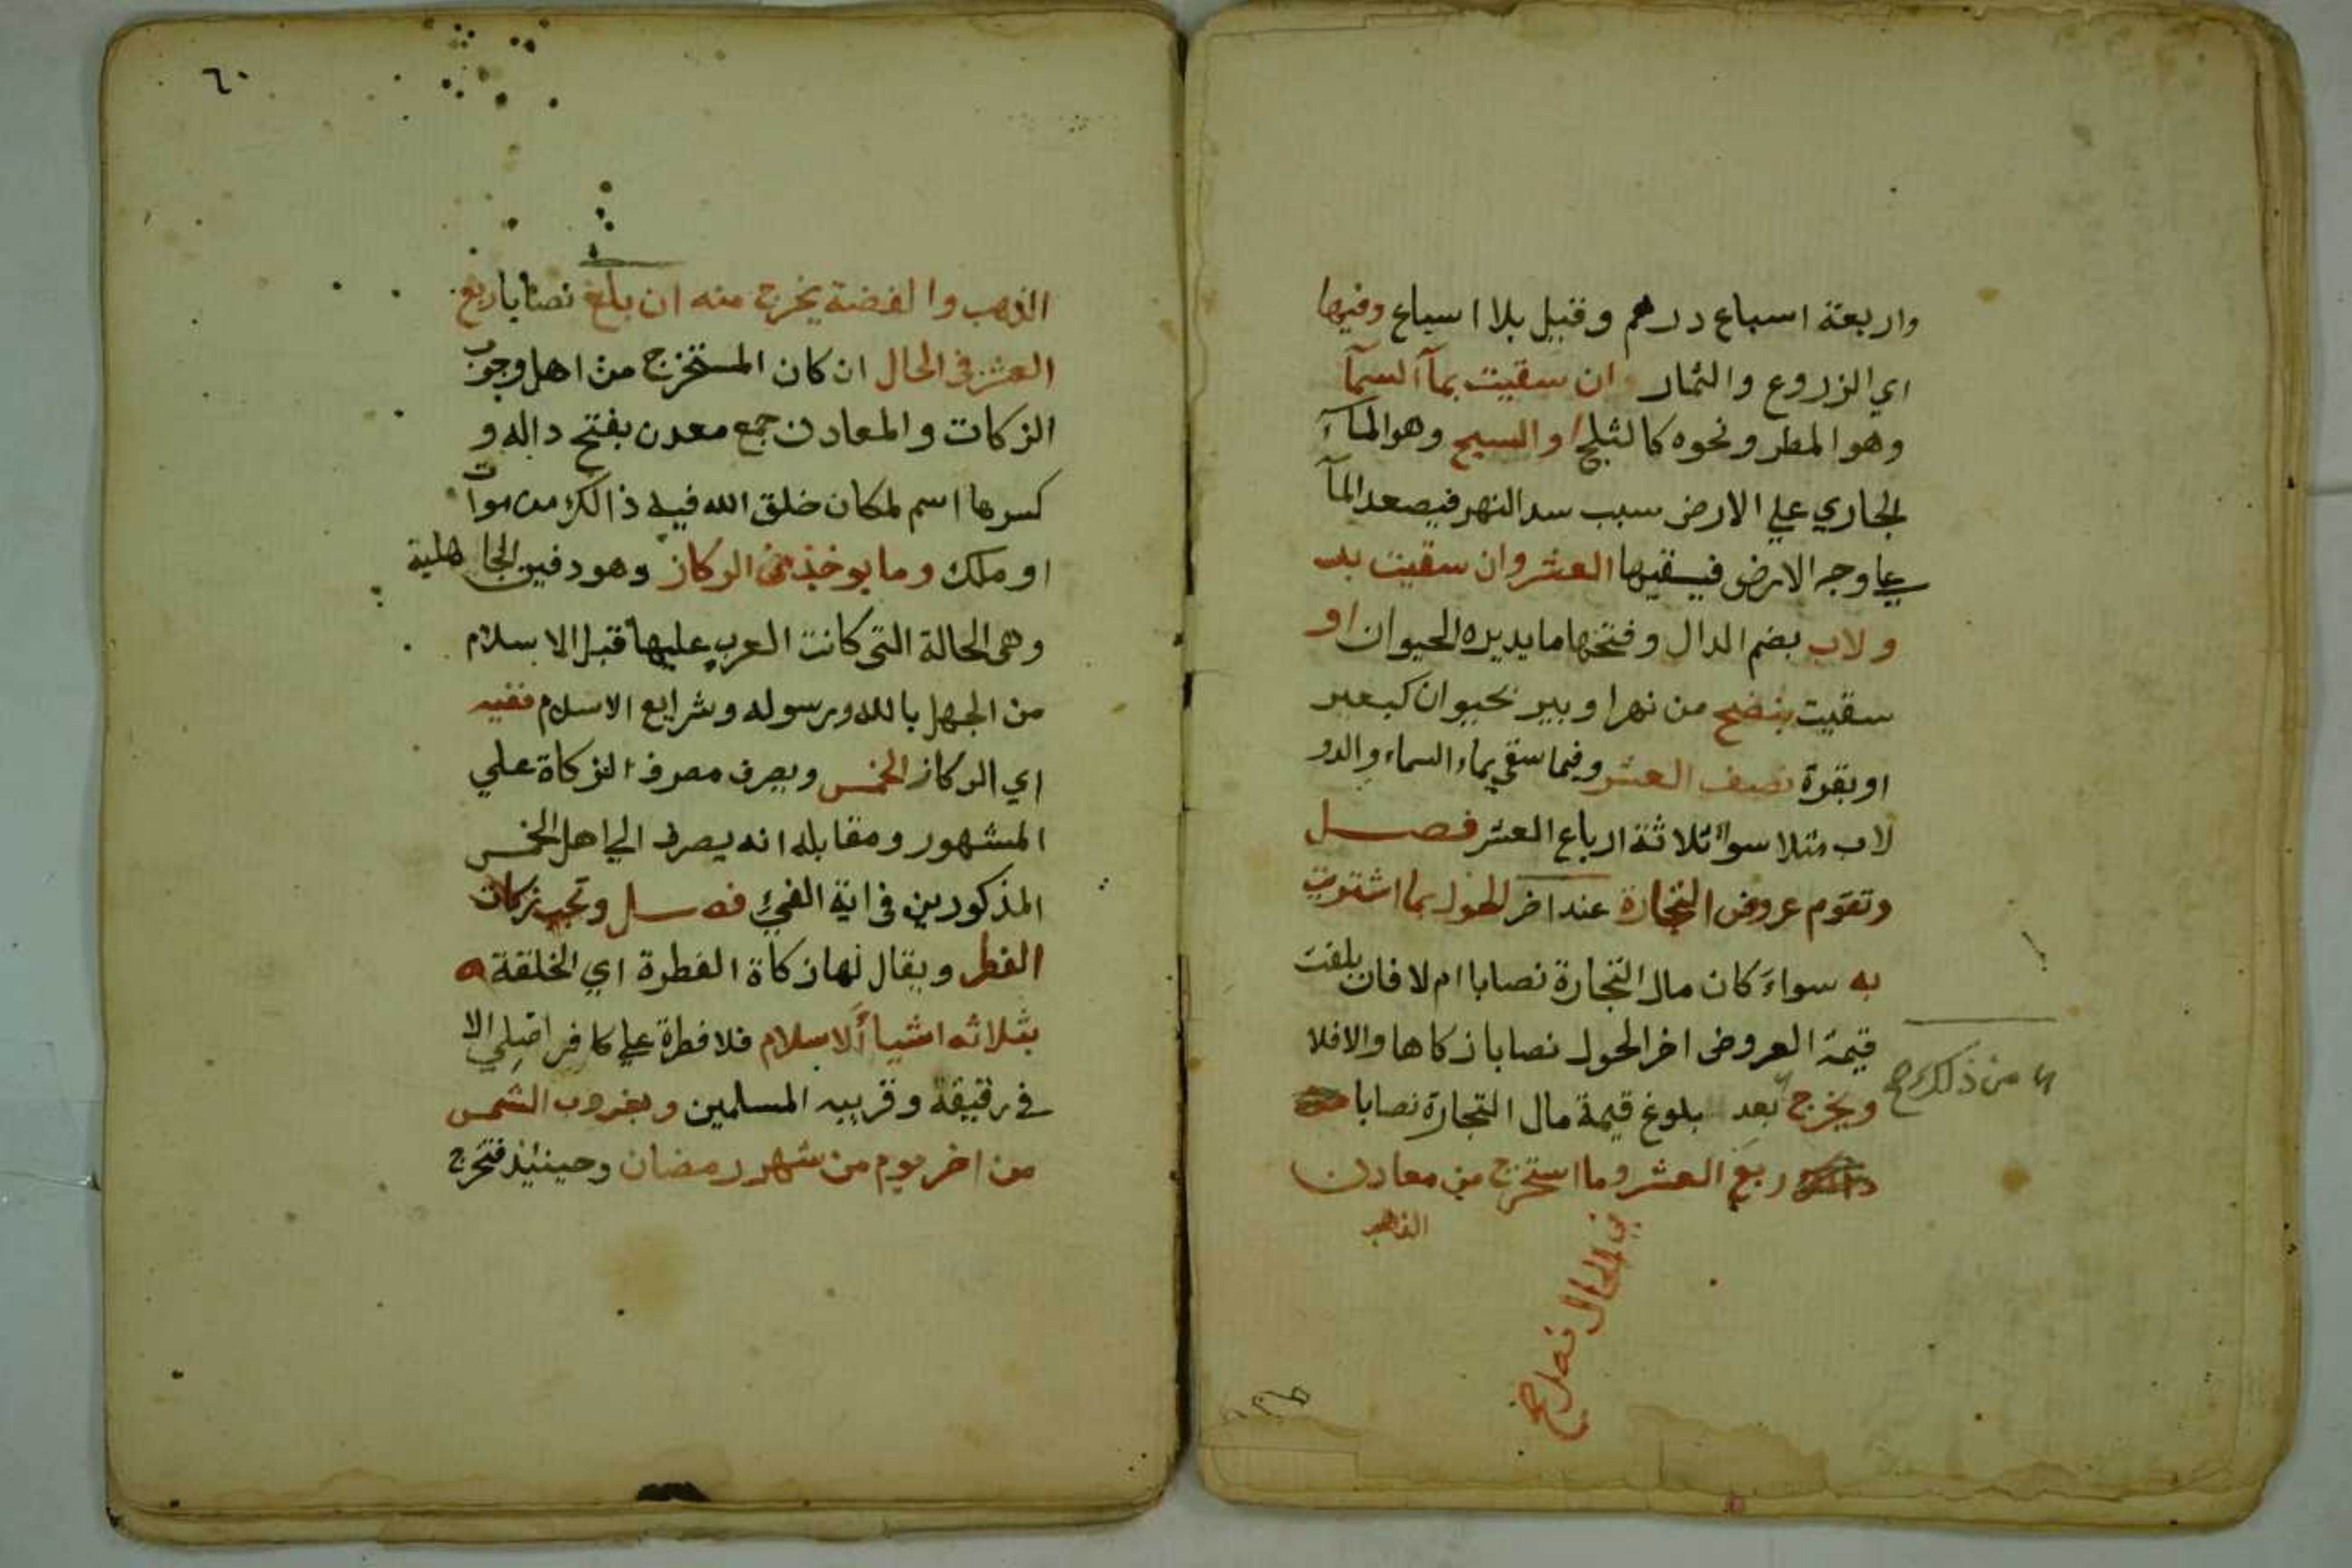 واربعة اسباع درهم وقيل بلا اسباع وفيها
اي الزروع والثمار ان سقيت بمآ السمآ
وهو المطر ونحوه كالثلج او السيح وهو المآ
الجاري علي الارض سبب سد النهر فيصعد المآ
علي وجه الارض فيسقيها العشر وان سقيت بد
ولاب بضم الدال وفتحها ما يديره الحيوان او
سقيت بنضح من نهر او بير بحيوان كبعير
او بقرة نصف العشر وفيما سقي بماء السماء والدو
لاب مثلا سوآ ثلاثة ارباع العشر فصل
وتقوم عروض التجارة عند اخر الحول بما اشتريت
به سواء كان مال التجارة نصابا ام لا فان بلغت
قيمة العروض اخر الحول نصابا زكاها والا فلا
ويخرج بعد بلوغ قيمة مال التجارة نصابا
ربع العشر وما استخرج من معادن
الذهب
من ذلك صح
في الحال
٦٠
الذهب والفضة يخرج منه ان بلغ نصابا ربع
العشر في الحال ان كان المستخرج من اهل وجوب
الزكات والمعادن جمع معدن بفتح داله و
كسرها اسم لمكان خلق الله فيه ذالك من موات
او ملك وما يوخذ من الركاز وهو دفين الجاهلية
وهى الحالة التى كانت العرب عليها قبل الاسلام
من الجهل بالله ورسوله وشرايع الاسلام ففيه
اي الركاز الخمس ويصرف مصرف الزكاة علي
المشهور ومقابله انه يصرف الي اهل الخمس
المذكورين فى اية الفيئ فصل وتجب زكات
الفطر ويقال لها زكاة الفطرة اي الخلقة
بثلاثه اشيآ الاسلام فلا فطرة علي كافر اصلي الا
في رقيقه وقريبه المسلمين وبغروب الشمس
من اخر يوم من شهر رمضان وحينئذ فتخرج